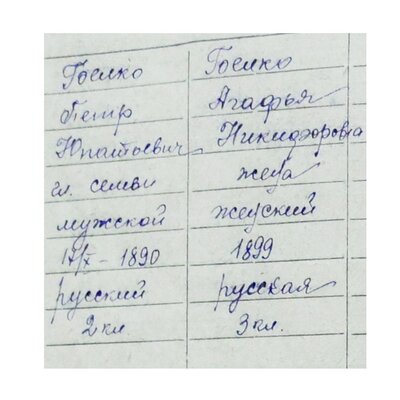 Гоелко Гоелко
Петр Агафья
Юпатьевич Никифоровна
гл. семьи жена
мужской женский
17/X - 1890 1899
русский русская
2 кл. 3 кл.